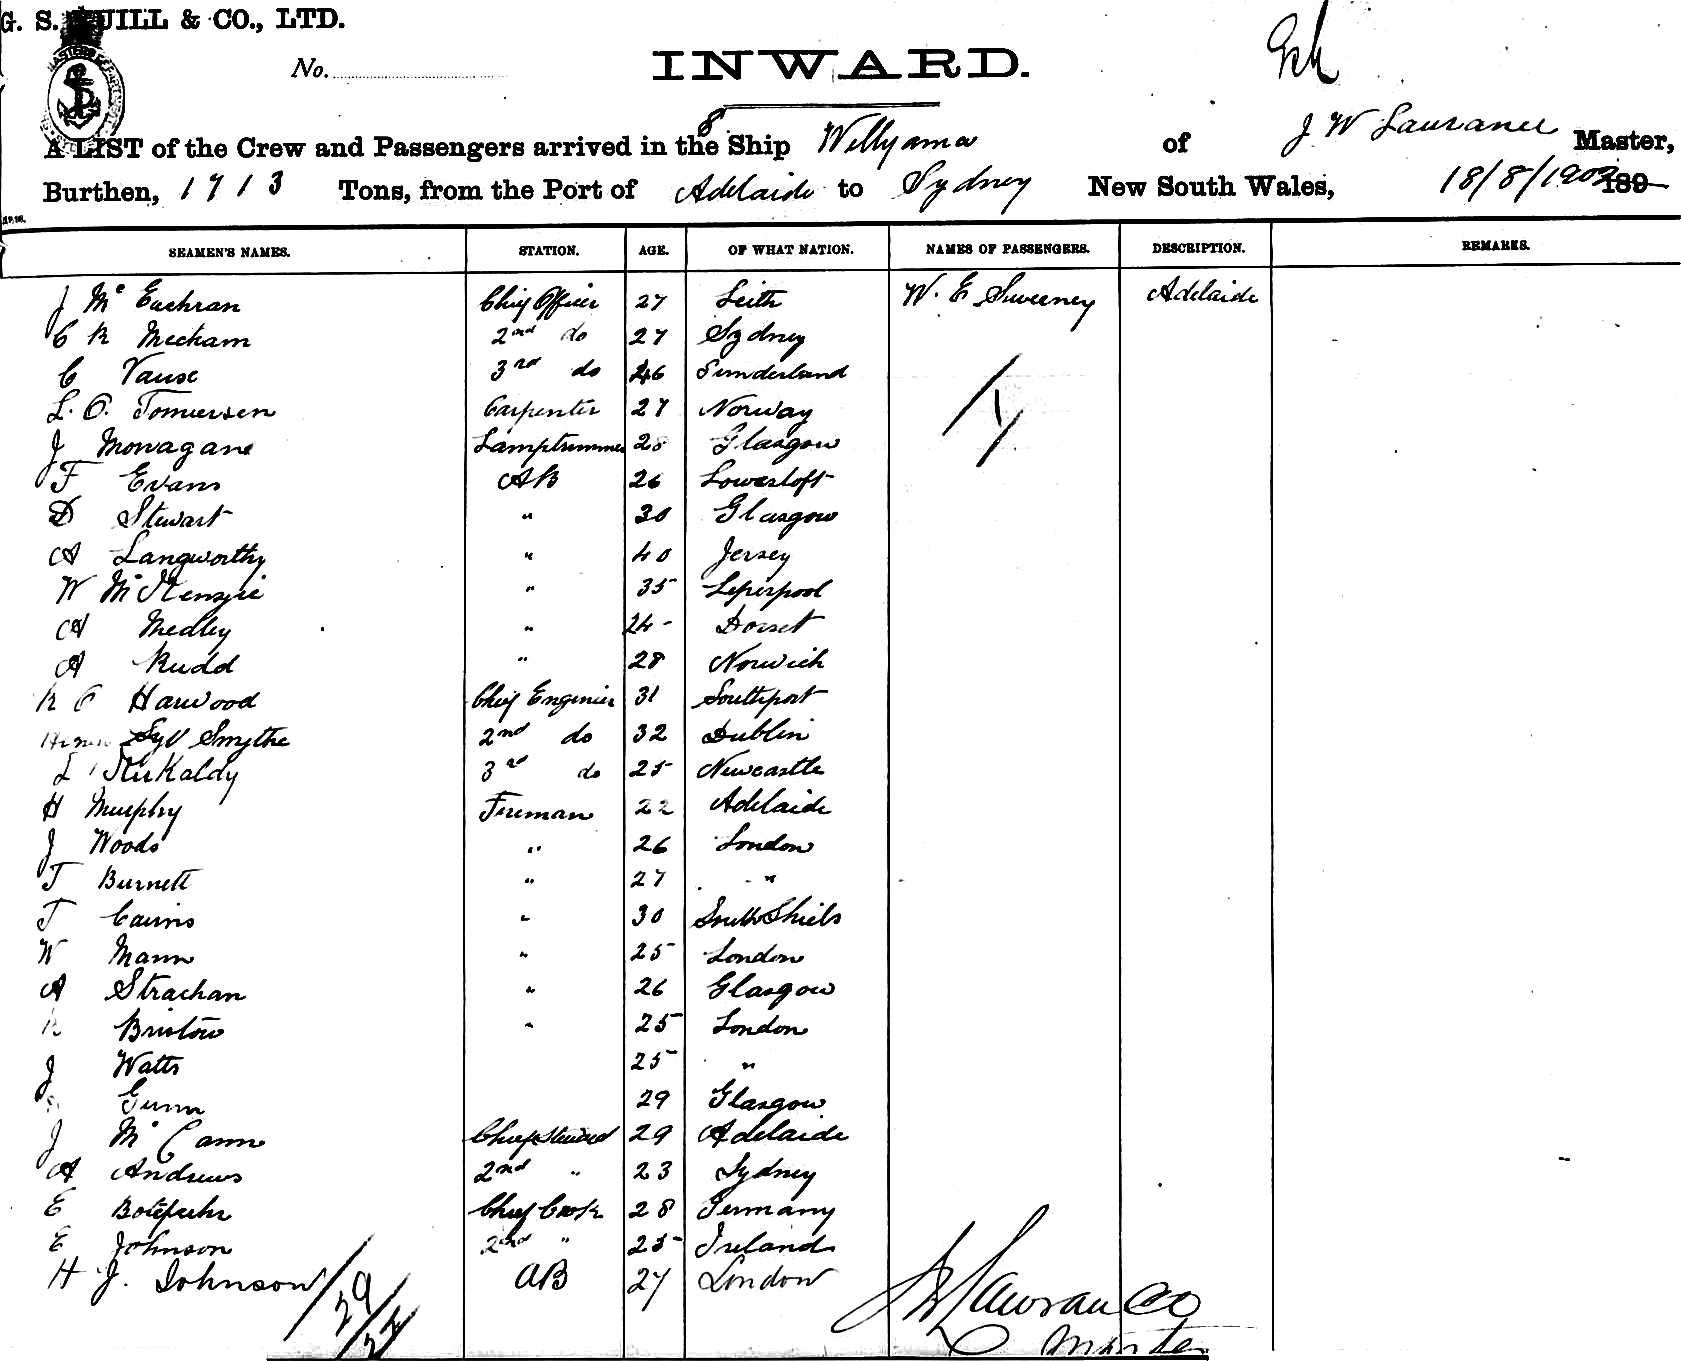 G. S. UILL & CO., LTD.
No.
INWARD.
A LIST of the Crew and Passengers arrived in the Ship Willyama of J W Laurance Master,
Burthen, 1713 Tons, from the Port of Adelaide to Sydney New South Wales, 18/8/1902 189
SEAMEN'S NAMES. STATION. AGE. OF WHAT NATION. NAMES OF PASSENGERS. DESCRIPTION. REMARKS.
J Mc Euchran Chief Officer 27 Leith W. E. Sweeney Adelaide
C R Mecham 2nd do 27 Sydney
C Vause 3rd do 46 Sunderland
L. O. Tomersen Carpenter 27 Norway
J Monagane Lamptrimmer 28 Glasgow
F Evans AB 26 Lowestoft
D Stewart " 30 Glasgow
A Langworthy " 40 Jersey
W McKenzie " 35 Leperpool
A Medley " 24 Dorset
A Rudd " 28 Norwich
R O Harwood Chief Enginier 31 Southport
Smythe 2nd do 32 Dublin
L Kirkaldy 3rd do 25 Newcastle
H Murphy Fireman 22 Adelaide
J Woods " 26 London
T Burnett " 27 "
T Cairns " 30 South Shiels
W Mann " 25 London
A Strachan " 26 Glasgow
R Bristow " 25 London
J Watts 25 "
Gunn 29 Glasgow
J McCann Chief Steward 29 Adelaide
A Andrews 2nd " 23 Sydney
E Chief Cook 28 Germany
E Johnson 2nd " 25 Ireland
H J. Johnson AB 27 London
29
J W Laurance
Master